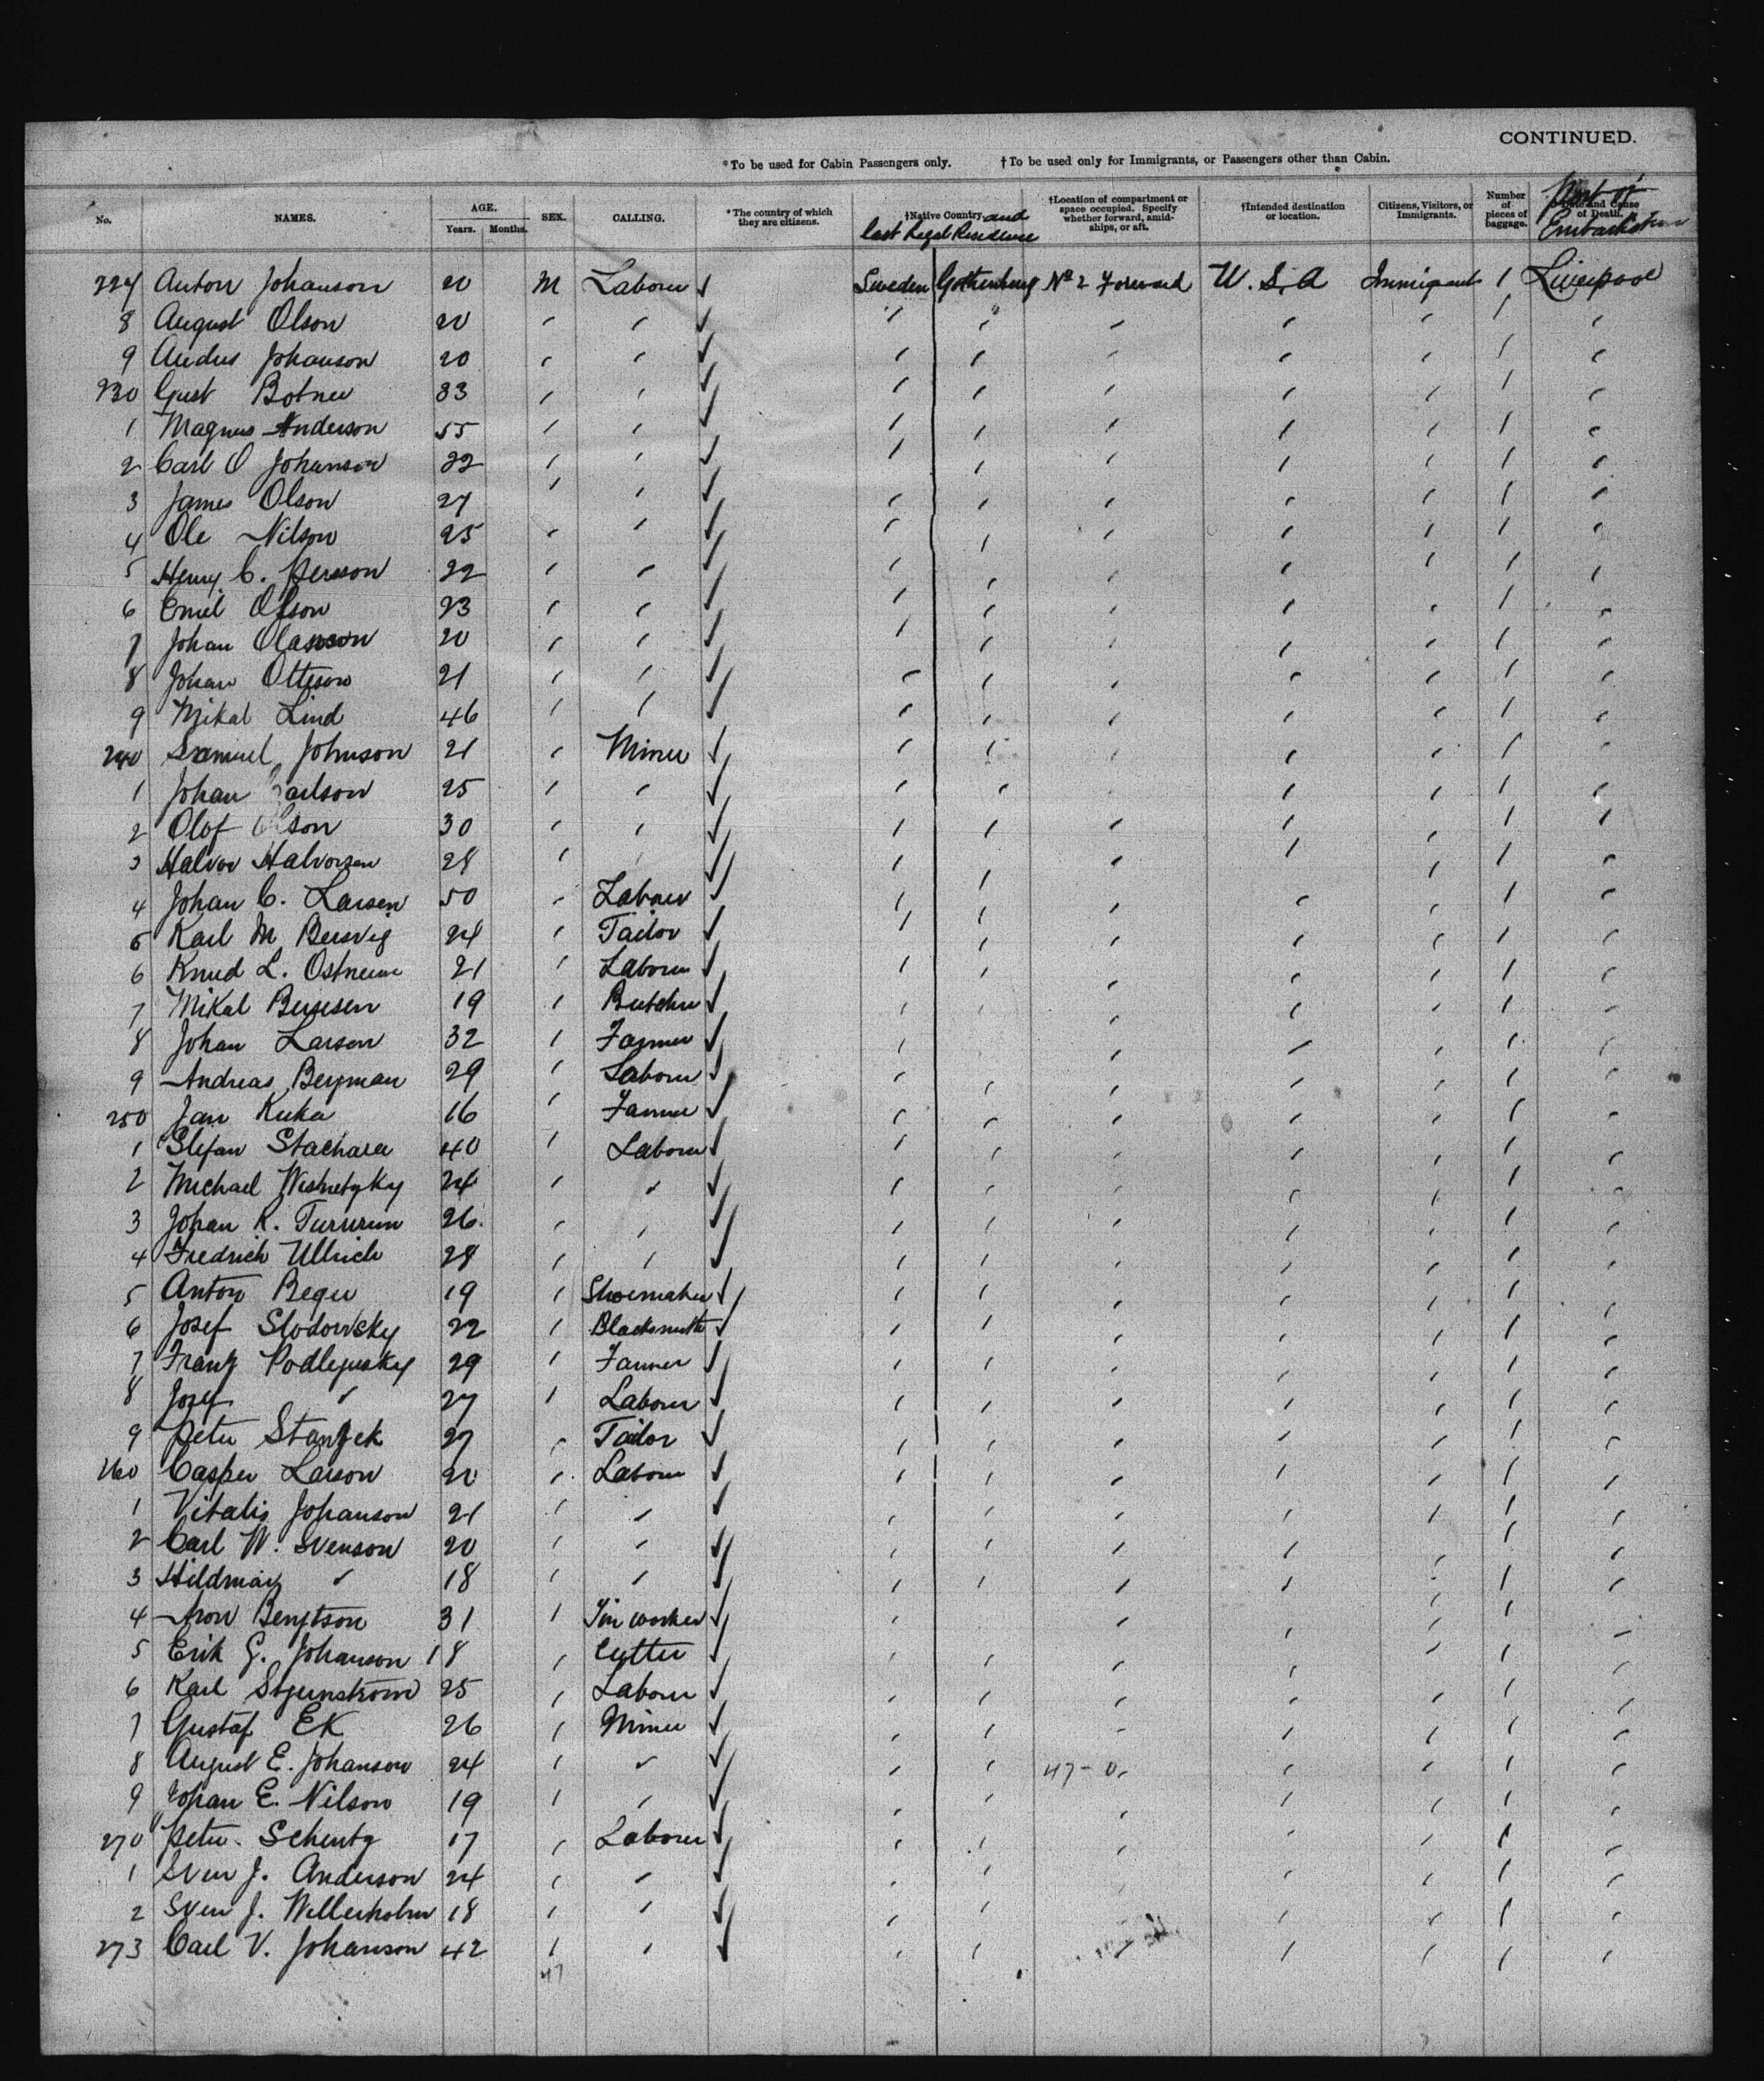 CONTINUED.
*To be used for Cabin Passengers only. †To be used only for Immigrants, or Passengers other than Cabin.
No. NAMES. AGE. Years. Months. SEX. CALLING. *The country of which they are citizens. †Native Country and last Legal Residence †Location of compartment or space occupied. Specify whether forward, amidships, or aft. †Intended destination or location. Citizens, Visitors, or Immigrants. Number of pieces of baggage. Port of Embarkation
227 Anton Johanson 20 M Laborer ✓ Sweden Gothenburg Nº 2 Forward U.S.A Immigrant 1 Liverpool
8 August Olson 20 ✓
9 Andus Johanson 20 ✓
230 Gust Botner 33 ✓
1 Magnus Anderson 55 ✓
2 Carl O Johanson 22 ✓
3 James Olson 27 ✓
4 Ole Nilson 25 ✓
5 Henry C. Persson 22 ✓
6 Emil Olson 23 ✓
7 Johan Olasson 20 ✓
8 Johan Ottison 21 ✓
9 Mikal Lind 46 ✓
240 Samuel Johnson 21 Miner ✓
1 Johan Carlson 25 ✓
2 Olof Olson 30 ✓
3 Halvor Halvorsen 28 ✓
4 Johan C. Larsen 50 Laborer ✓
5 Karl M 24 Tailor ✓
6 Knud L. 21 Laborer ✓
7 Mikal 19 Butcher ✓
8 Johan Larson 32 Farmer ✓
9 Andreas Bergman 29 Laborer ✓
250 Jan Kuka 16 Farmer ✓
1 Stefan 40 Laborer ✓
2 Michael Wishnetzky 24 ✓
3 Johan K. 26 ✓
4 Fredrich Ullrich 28 ✓
5 Anton 19 Shoemaker ✓
6 Josef Slodowsky 22 Blacksmith ✓
7 Franz 29 Farmer ✓
8 Jozef 〃 27 Laborer ✓
9 Peter Stanzek 27 Tailor ✓
260 Casper Larson 20 Laborer ✓
1 Vitalis Johanson 21 ✓
2 Carl W. Svenson 20 ✓
3 18 ✓
4 Aron Bengtson 31 Tin worker ✓
5 Erik G. Johanson 18 Cutter ✓
6 Karl 25 Laborer ✓
7 Gustaf EK 26 Miner ✓
8 August E. Johanson 24 ✓ 47-0
9 Johan E. Nilson 19 ✓
270 Peter Schentz 17 Laborer ✓
1 Sven J. Anderson 24 ✓
2 Sven J. 18 ✓
273 Carl V. Johanson 42 ✓
47